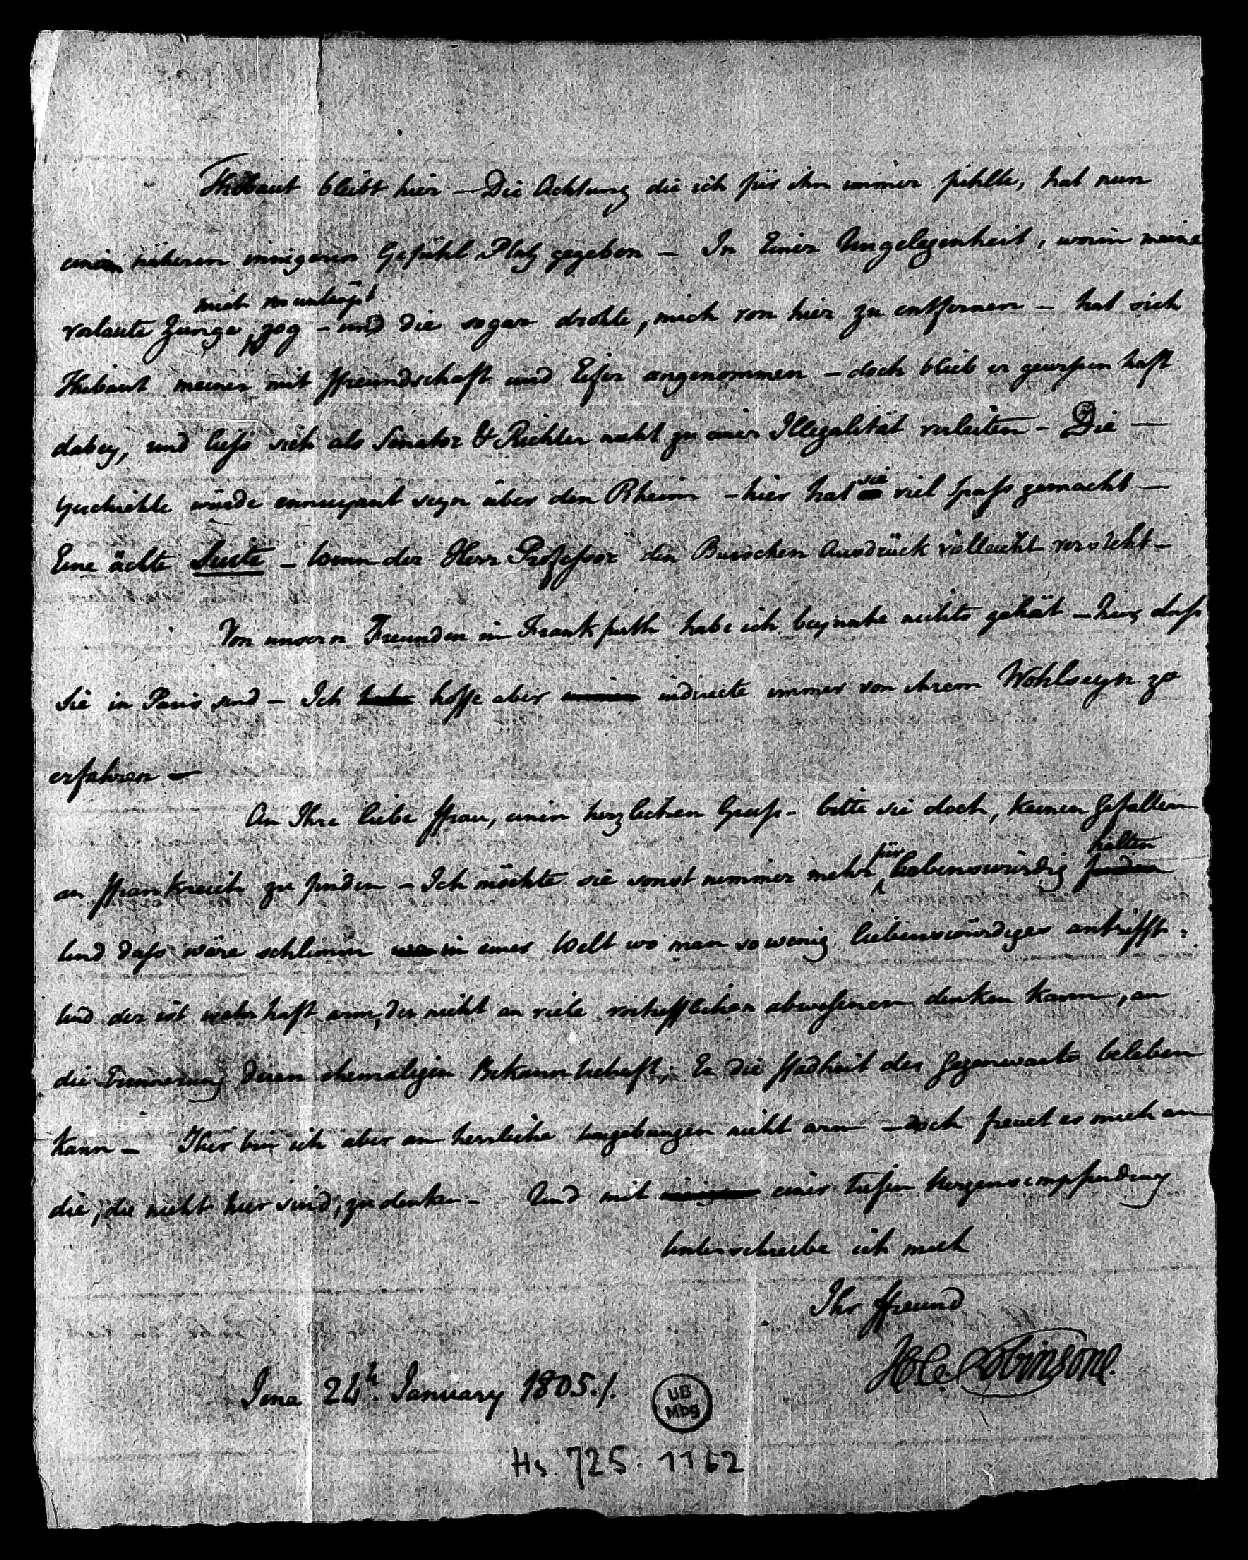 Thibaut bleibt hier – Die Achtung die ich für ihn immer fühlte, hat nun
einem näheren innigeren Gefühl Platz gegeben – In Einer Angelegenheit, worin meine
mich verunlängst
vorlaute Zunge, zog – und die sogar drohte, mich von hier zu entfernen – hat sich
Thibaut meiner mit Freundschaft und Eifer angenommen – doch blieb er gewissenhaft
dabey, und liess sich als Senator & Richter nicht zu einer Illegalität verleiten – Die –
Geschichte würde ennuyant seyn über den Rhein – hier hat sie viel spass gemacht –
Eine ächte Suite – wenn der Herr Professor den Burschen Ausdrück vielleicht versteht –
Von unsern Freunden in Frankfurth habe ich beynahe nichts gehört – kurz dass
sie in Paris sind – Ich hoffe aber indirecte immer von ihrem Wohlseyn zu
erfahren –
An Ihre liebe Frau, einen herzlichen Gruss – bitte sie doch, keinen Gefallen
halten
an Frankreich zu finden – Ich möchte sie sonst nimmer mehr für liebenswürdig finden
Und dass wäre schlimm in einer Welt wo man so wenig liebenswürdiges antrifft:
Und der ist wahrhaft arm, der nicht an viele vortrefflichen abwesenen denken kann, an
die Erinnerung deren ehemaligen Bekanntschaft, Er die Fadheit der Gegenwart beleben
kann – Hier bin ich aber an herrliche Umgebungen nicht arm – doch freuet es mich an
die, die nicht hier sind, zu denken – Und mit einer tiefen Herzensempfindung
Unterschreibe ich mich
Ihr Freund
HC Robinson.
Jena 24th. January 1805./.
UB
Mbg
Hs. 725. 1162